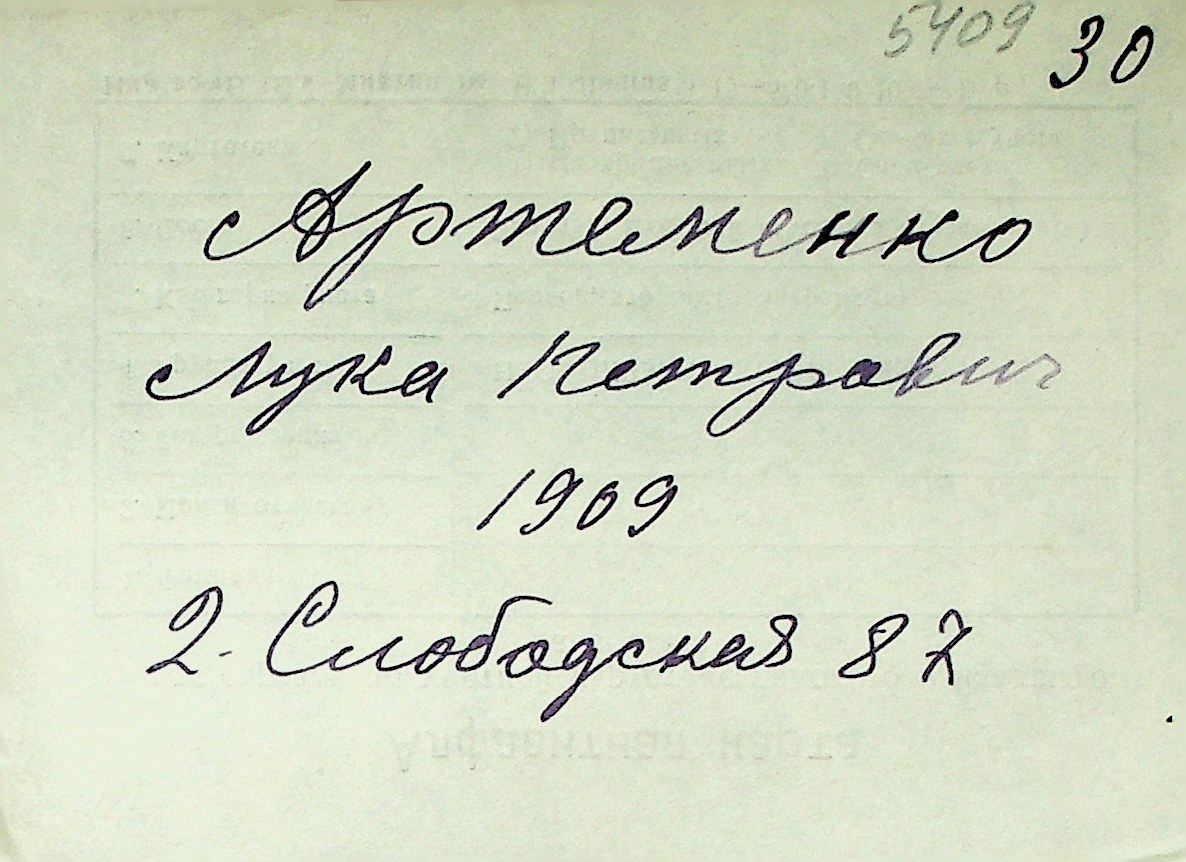 5409 30
Артеменко
Лука Петрович
1909
2. Слободская 87